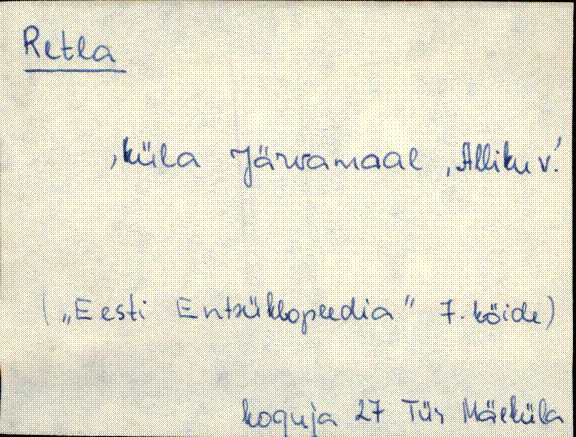 Retla
, küla Järvamaal, Alliku v.
( „Eesti Entsüklopeedia" 7. köide)
koguja 27 Tür Mäeküla